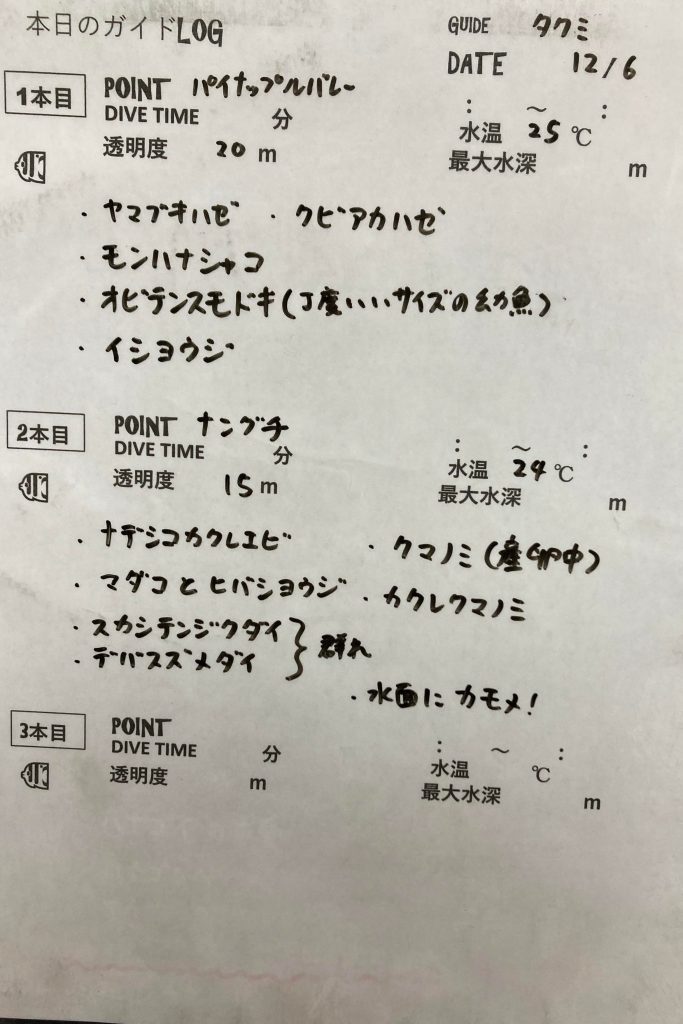 本日のガイドLOG
GUIDE タクミ
DATE 12/6
1本目 POINT パイナップルバレー
DIVE TIME 分 : ～ :
透明度 20 m 水温 25 ℃
最大水深 m
・ヤマブキハゼ ・クビアカハゼ
・モンハナシャコ
・オビテンスモドキ(丁度いいサイズの幼魚)
・イショウジ
2本目 POINT ナングチ
DIVE TIME 分 : ～ :
透明度 15 m 水温 24 ℃
最大水深 m
・ナデシコカクレエビ ・クマノミ(産卵中)
・マダコとヒバショウジ ・カクレクマノミ
・スカシテンジクダイ
・デバスズメダイ } 群れ
・水面にカモメ!
3本目 POINT
DIVE TIME 分 : ～ :
透明度 m 水温 ℃
最大水深 m